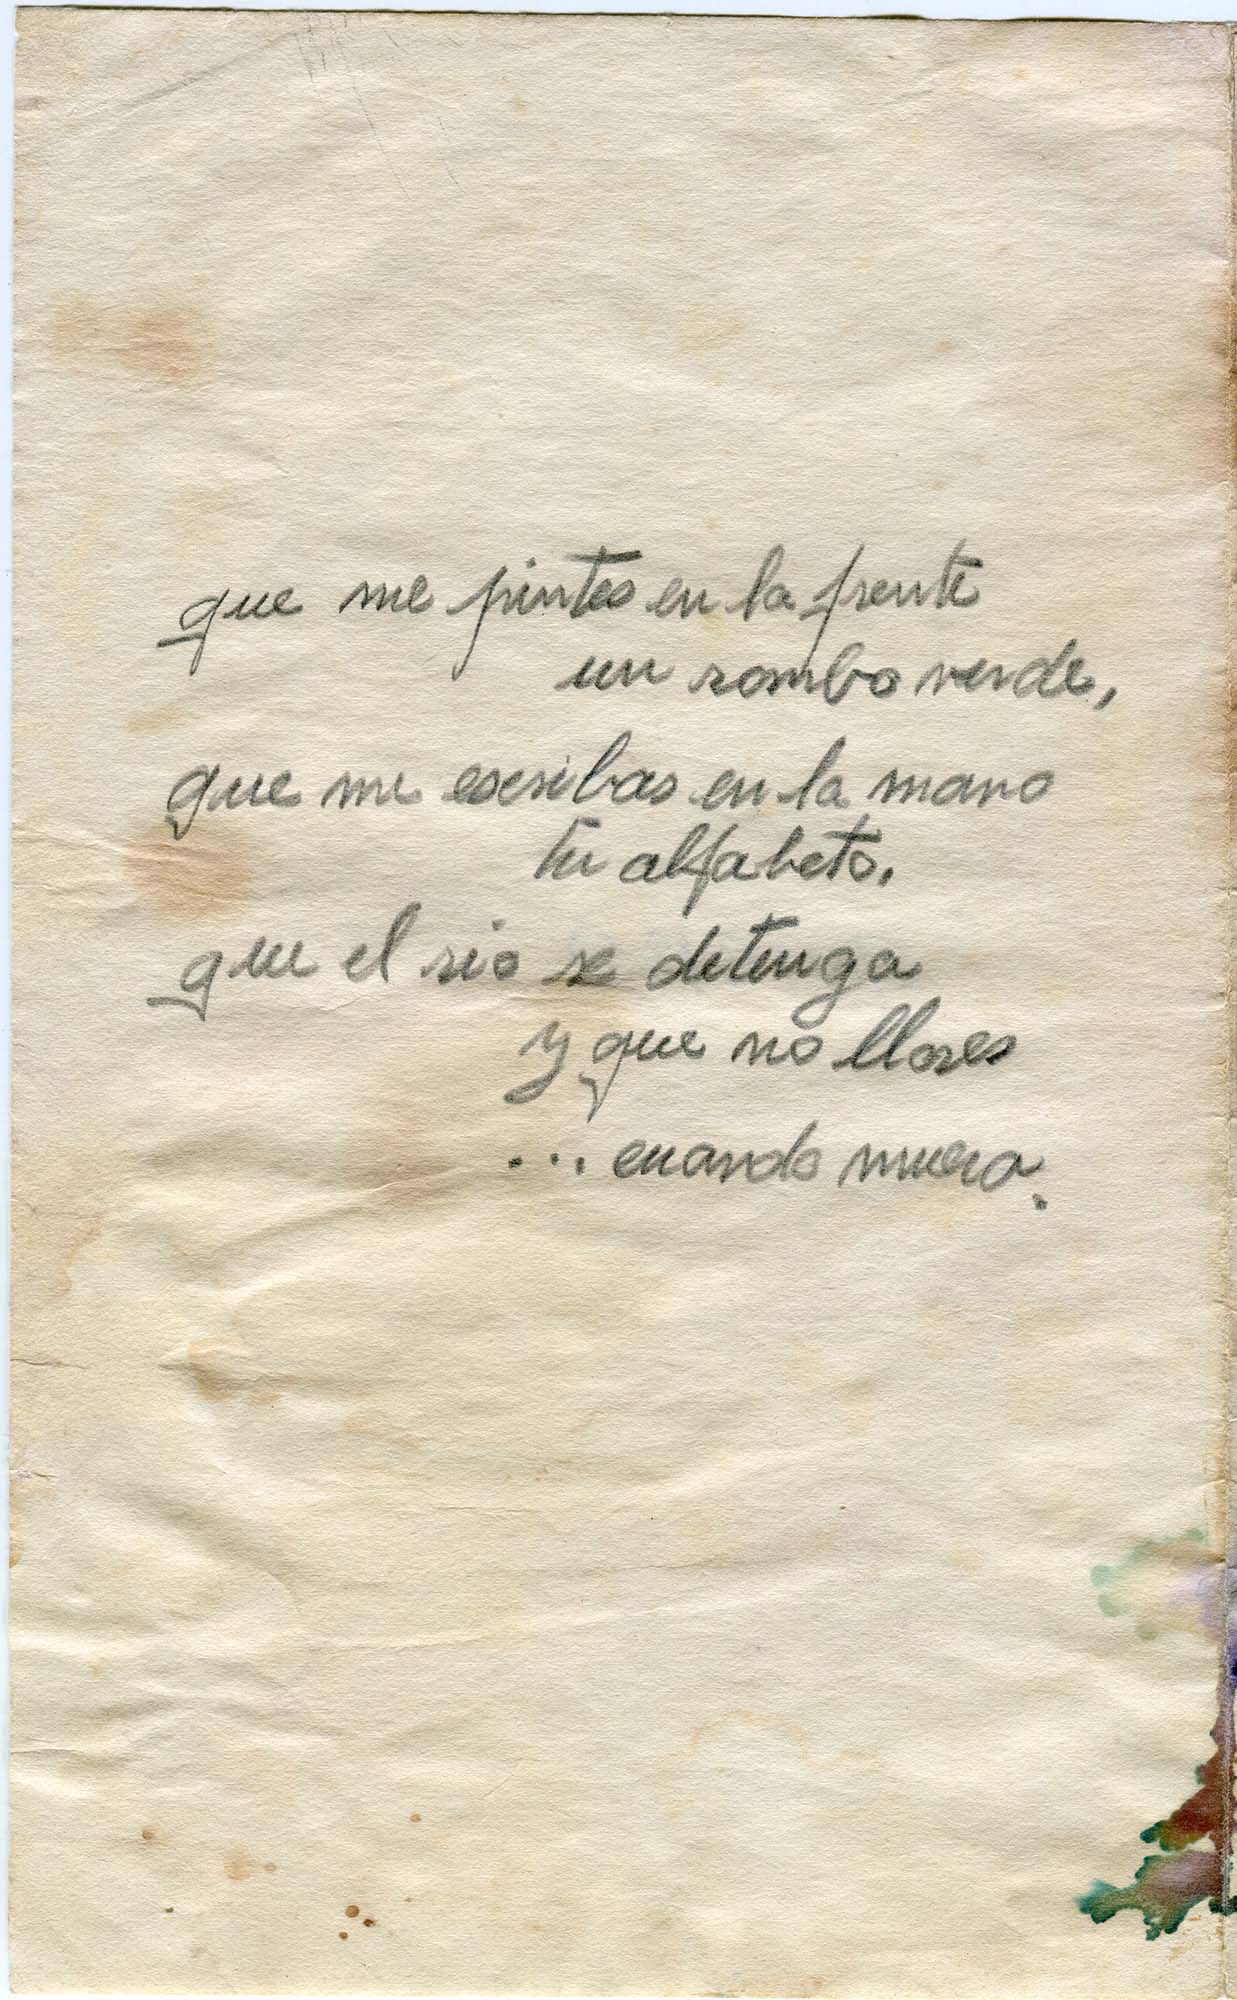 que me pintes en la frente
un rombo verde,
que me escribas en la mano
tu alfabeto.
que el rio se detenga
y que no llores
... cuando muera.